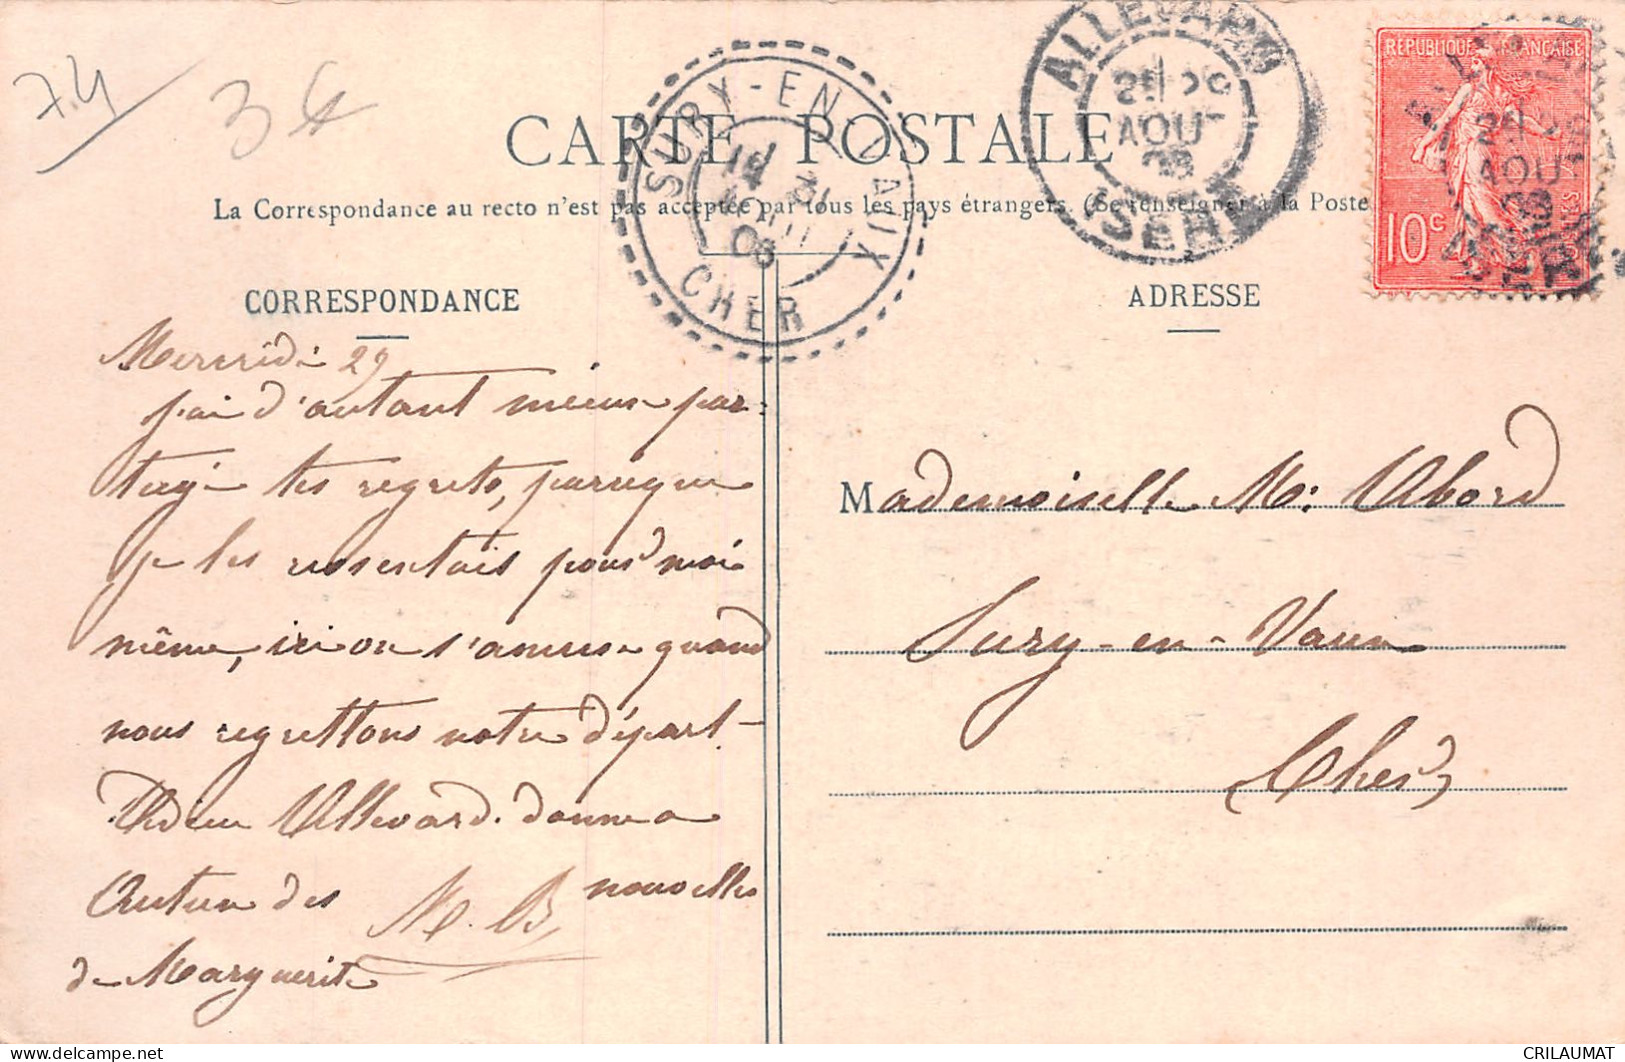 7.4
3€
CARTE POSTALE
La Correspondance au recto n'est pas acceptée par tous les pays étrangers. (Se renseigner à la Poste
SURY-EN-VAUX
CHER
ALLEVARD
29
AOUT
ISERE
REPUBLIQUE FRANÇAISE
10c
POSTES
CORRESPONDANCE
ADRESSE
Mercredi 29
j'ai d'autant mieux par-
tagé tes regrets, parceque
je les ressentais pour moi
même, ici on s'amuse quand
nous regrettons notre départ
Adieu Allevard. donne a
Autun des nouvelles
de Marguerite
M. B
Mademoiselle M: Abord
Sury-en-Vaux
Cher
CRILAUMAT